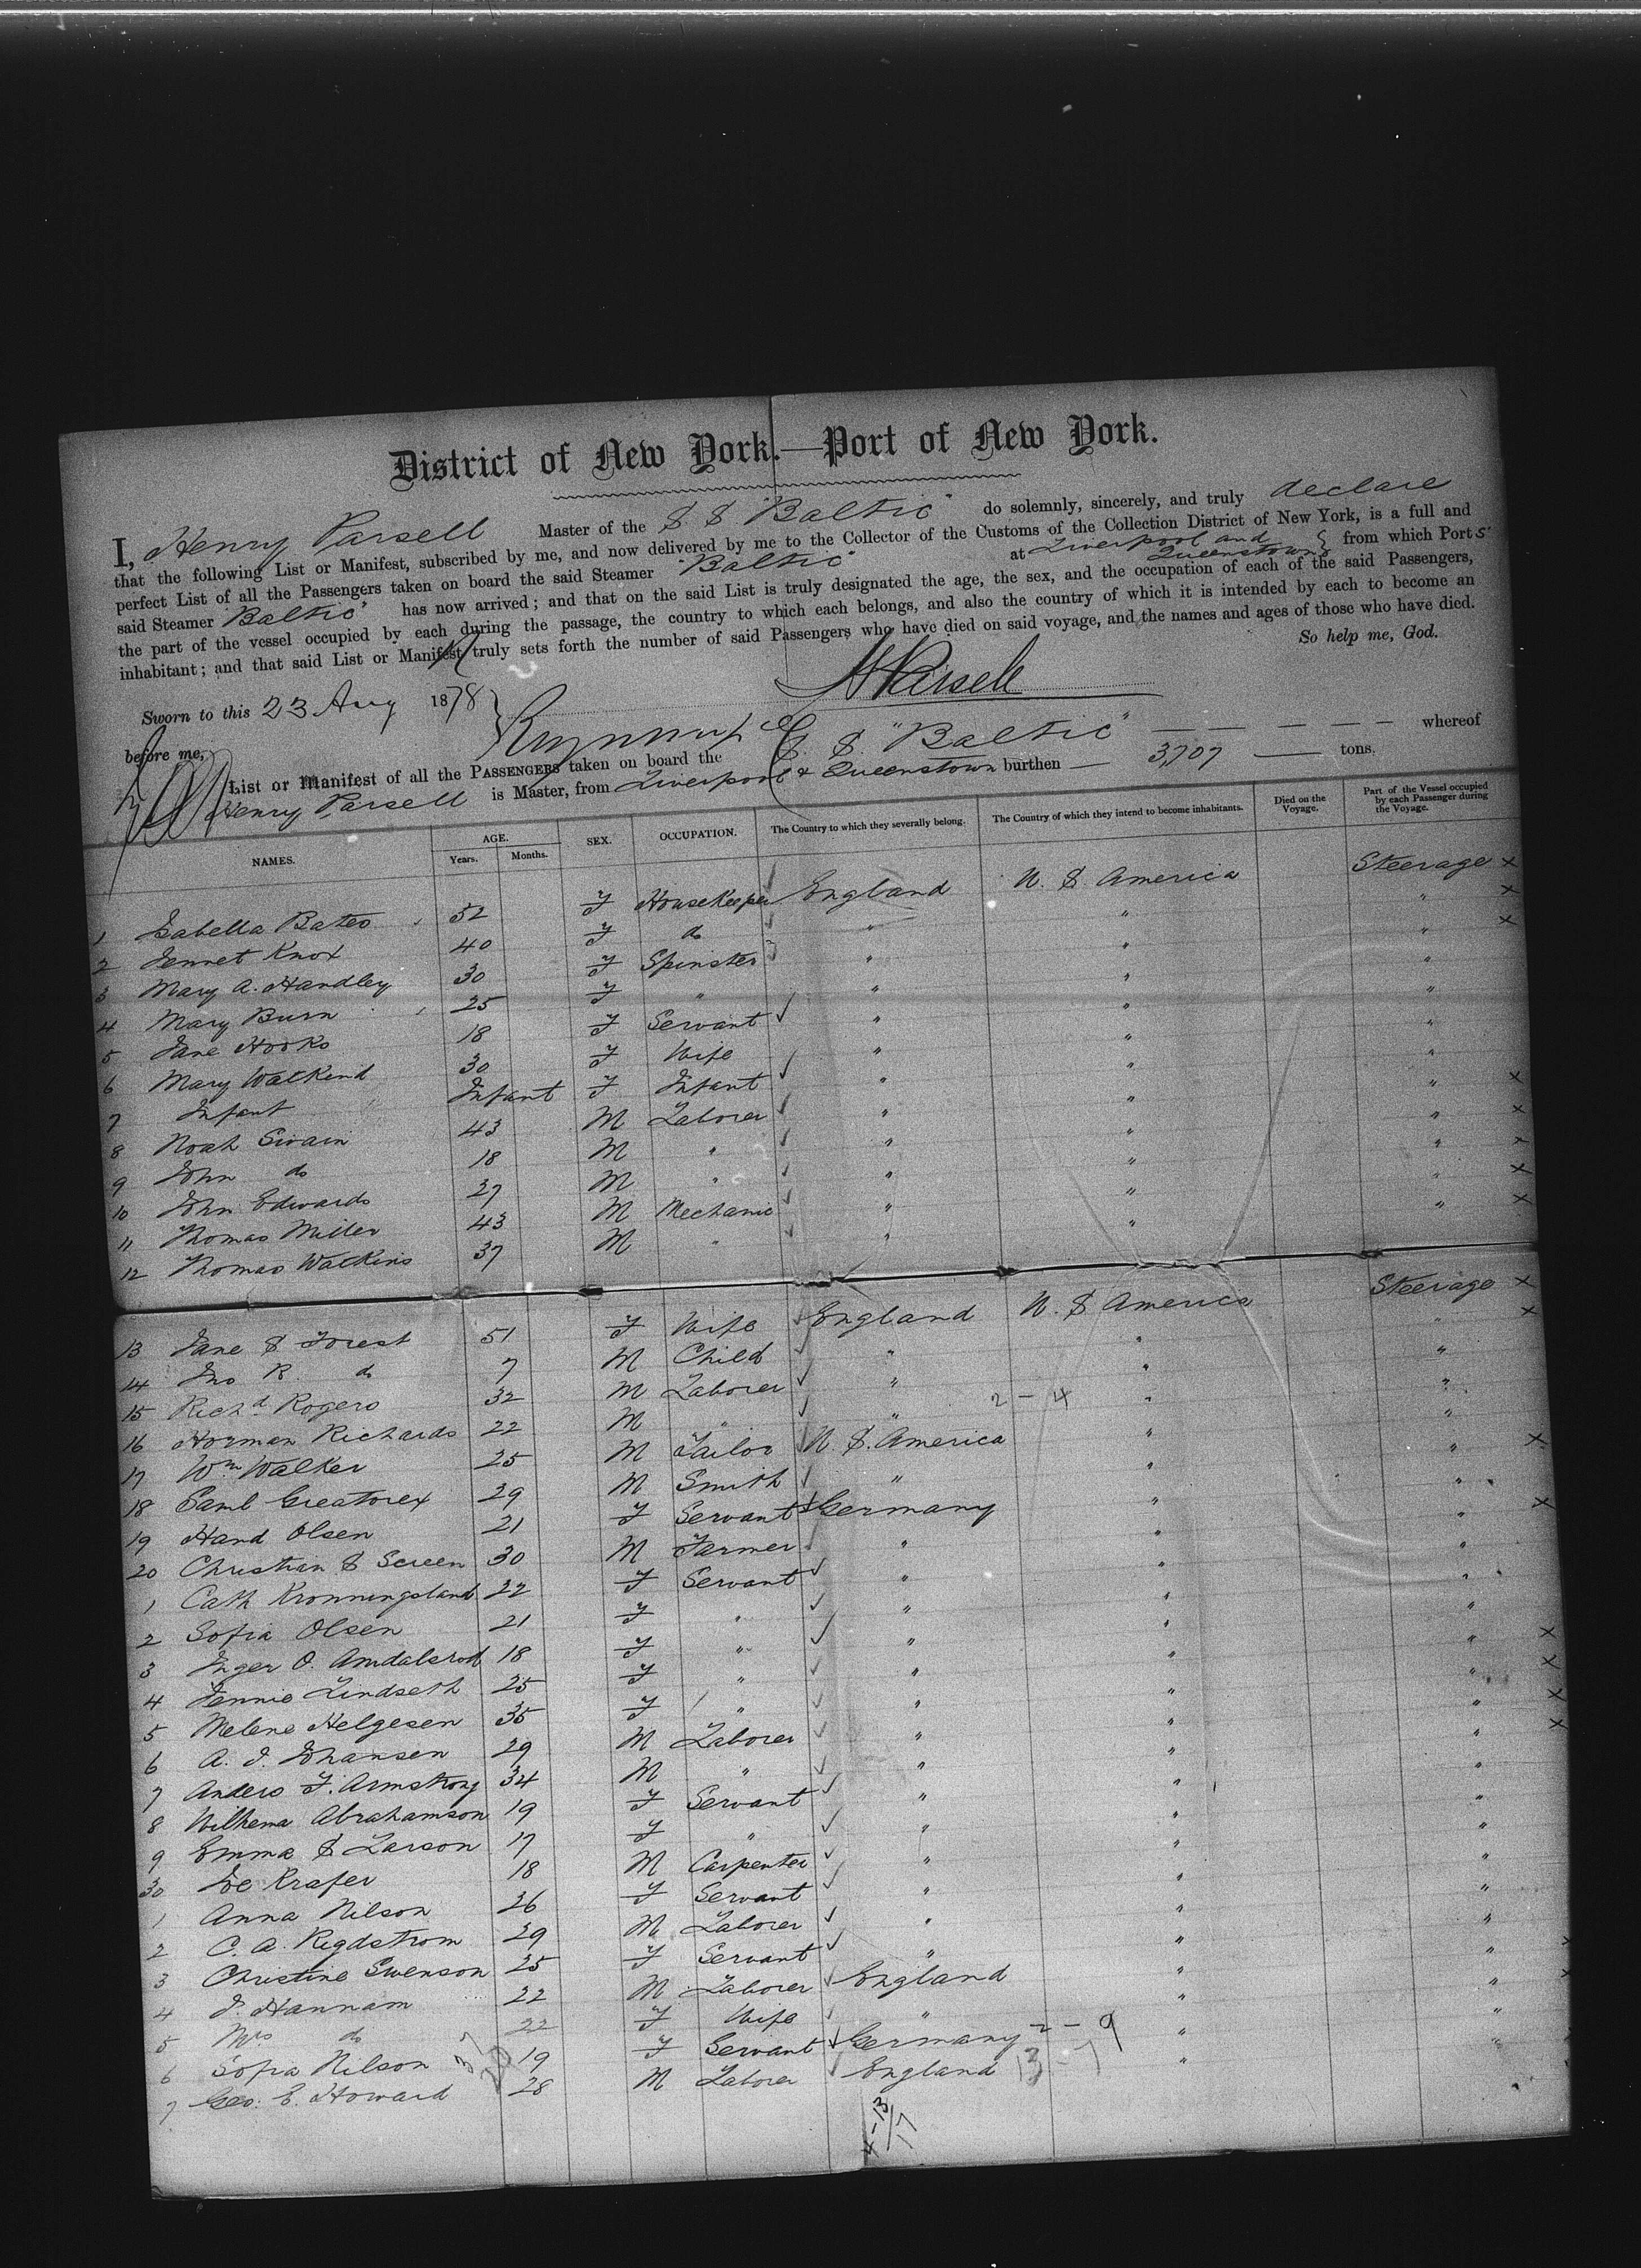 District of New York.—Port of New York.
I, Henry Parsell Master of the S S "Baltic" do solemnly, sincerely, and truly declare
that the following List or Manifest, subscribed by me, and now delivered by me to the Collector of the Customs of the Collection District of New York, is a full and
perfect List of all the Passengers taken on board the said Steamer "Baltic" at Liverpool and Queenstown from which Ports
said Steamer "Baltic" has now arrived; and that on the said List is truly designated the age, the sex, and the occupation of each of the said Passengers,
the part of the vessel occupied by each during the passage, the country to which each belongs, and also the country of which it is intended by each to become an
inhabitant; and that said List or Manifest truly sets forth the number of said Passengers who have died on said voyage, and the names and ages of those who have died.
So help me, God.
Sworn to this 23 Aug 1878
H Parsell
before me,
List or Manifest of all the PASSENGERS taken on board the S. S "Baltic" whereof
Henry Parsell is Master, from Liverpool & Queenstown burthen 3,707 tons.
NAMES. AGE. Years. Months. SEX. OCCUPATION. The Country to which they severally belong. The Country of which they intend to become inhabitants. Died on the Voyage. Part of the Vessel occupied by each Passenger during the Voyage.
1 Isabella Bates 52 F Housekeeper England U. S. America Steerage x
2 Jennet Knox 40 F do " " " x
3 Mary A. Handley 30 F Spinster " " " x
4 Mary Burn 25 F " " " "
5 Jane Hooks 18 F Servant " " "
6 Mary Watkend 30 F Wife " " "
7 Infant Infant F Infant " " "
8 Noah Swain 43 M Laborer " " " x
9 John do 18 M " " " " x
10 John Edwards 27 M " " " " x
11 Thomas Miller 43 M Mechanic " " " x
12 Thomas Watkins 37 M " " " " x
13 Jane S Forest 51 F Wife England U. S. America Steerage x
14 Jno R. do 7 M Child " " " x
15 Richd Rogers 32 M Laborer " " "
16 Norman Richards 22 M " " 2 - 4 " "
17 Wm Walker 25 M Tailor U. S. America " "
18 Saml Greatorex 29 M Smith " " " x
19 Hand Olsen 21 F Servant Germany " "
20 Christian S Screen 30 M Farmer " " " x
1 Cath Kronningsland 22 F Servant " " "
2 Sofia Olsen 21 F " " " "
3 Inger O. Amdalsrod 18 F " " " "
4 Jennie Lindseth 25 F " " " " x
5 Melene Helgesen 35 F " " " " x
6 A. J. Johansen 29 M Laborer " " " x
7 Anders F. Armstrong 34 M " " " " x
8 Wilhema Abrahamson 19 F Servant " " "
9 Emma S Larson 17 F " " " "
30 Joe Krafer 18 M Carpenter " " "
1 Anna Nilson 26 F Servant " " "
2 C. A. Rigdstrom 29 M Laborer " " "
3 Christine Swenson 25 F Servant " " "
4 J. Hannam 22 M Laborer England " " x
5 Mrs do 22 F Wife " " " x
6 Sofia Nilson 19 F Servant Germany 2 - 9 " "
7 Geo. E. Howard 28 M Laborer England 13 - 7 " "
4-13/17